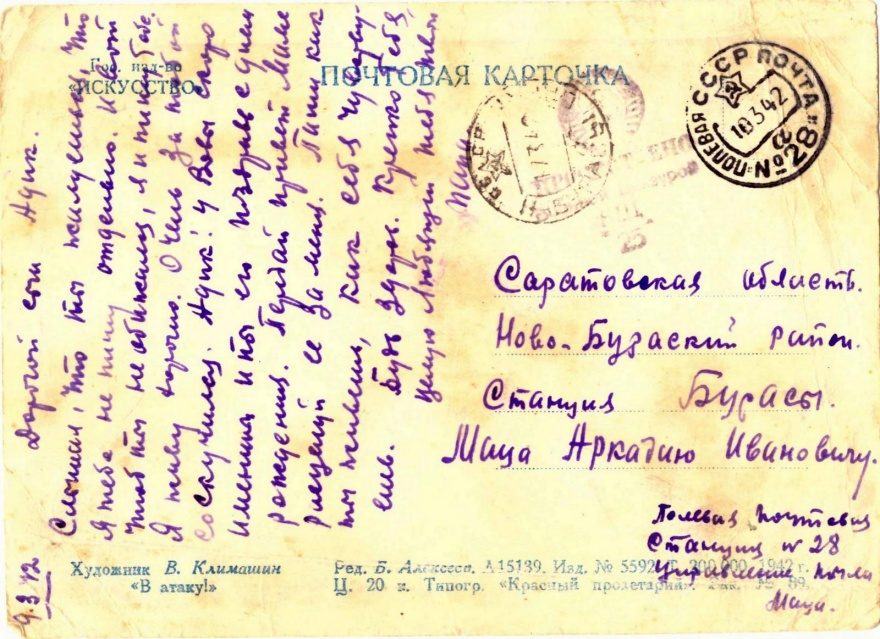 Гос. изд-во
«ИСКУССТВО»
ПОЧТОВАЯ КАРТОЧКА
СССР ПОЧТА
10 3 42
ПОЛЕВАЯ № 28
Дорогой сын Адик.
Слышал, что ты жалуешься, что
я тебе не пишу отдельно. И вот
чтоб ты не обижался, я пишу тебе.
Я живу хорошо. Очень за тобой
соскучился. Адик! у Вовы скоро
именины и ты его поздравь с днем
рождения. Передай привет маме
и расцелуй ее за меня. Пиши как
ты живешь, как себя чувству-
ешь. Будь здоров. Крепко тебя
целую Любящий тебя твой
папа
9.3.42
Саратовская область.
Ново-Бураский район.
Станция Бурасы.
Маца Аркадию Ивановичу.
Полевая почтовая
Станция № 28
Управление
Маца.
Художник В. Климашин
«В атаку!»
Ред. Б. Алексеев. А15139. Изд. № 5592. Т. 200.000. 1942 г.
Ц. 20 к. Типогр. «Красный пролетарий». Зак. № 89.